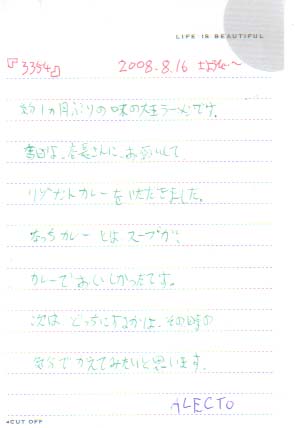 LIFE IS BEAUTIFUL
『3354』 2008.8.16
約1ヵ月ぶりの味の大王ラーメンです。
店長さんに、お会いして
カレーをいただきました。
なっちカレーとは スープが、
カレーでおいしかったです。
次は どっちにするかは、その時の
気分でかえてみたいと思います。
ALECTO
◂CUT OFF